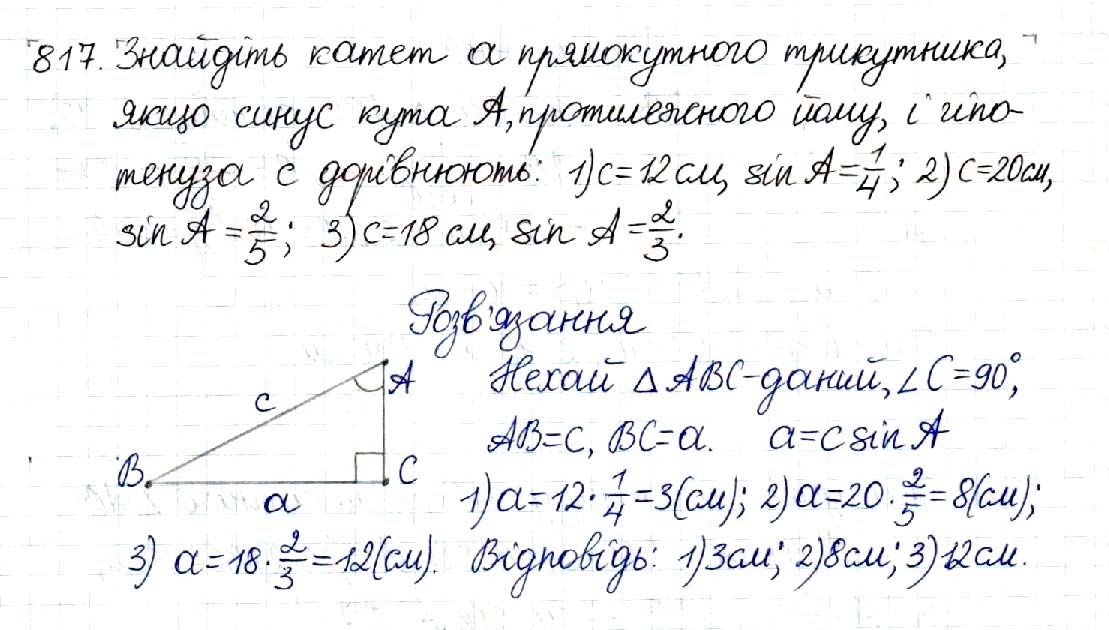 817. Знайдіть катет a прямокутного трикутника,
якщо синус кута A, протилежного йому, і гіпо-
тенуза c дорівнюють: 1) c = 12 см, sin A = 1/4; 2) c = 20 см,
sin A = 2/5; 3) c = 18 см, sin A = 2/3.
Розв'язання
A
Нехай △ ABC - даний, ∠C = 90°,
c
AB = c, BC = a. a = c sin A
B
C
a
1) a = 12 · 1/4 = 3 (см); 2) a = 20 · 2/5 = 8 (см);
3) a = 18 · 2/3 = 12 (см). Відповідь: 1) 3 см; 2) 8 см; 3) 12 см.